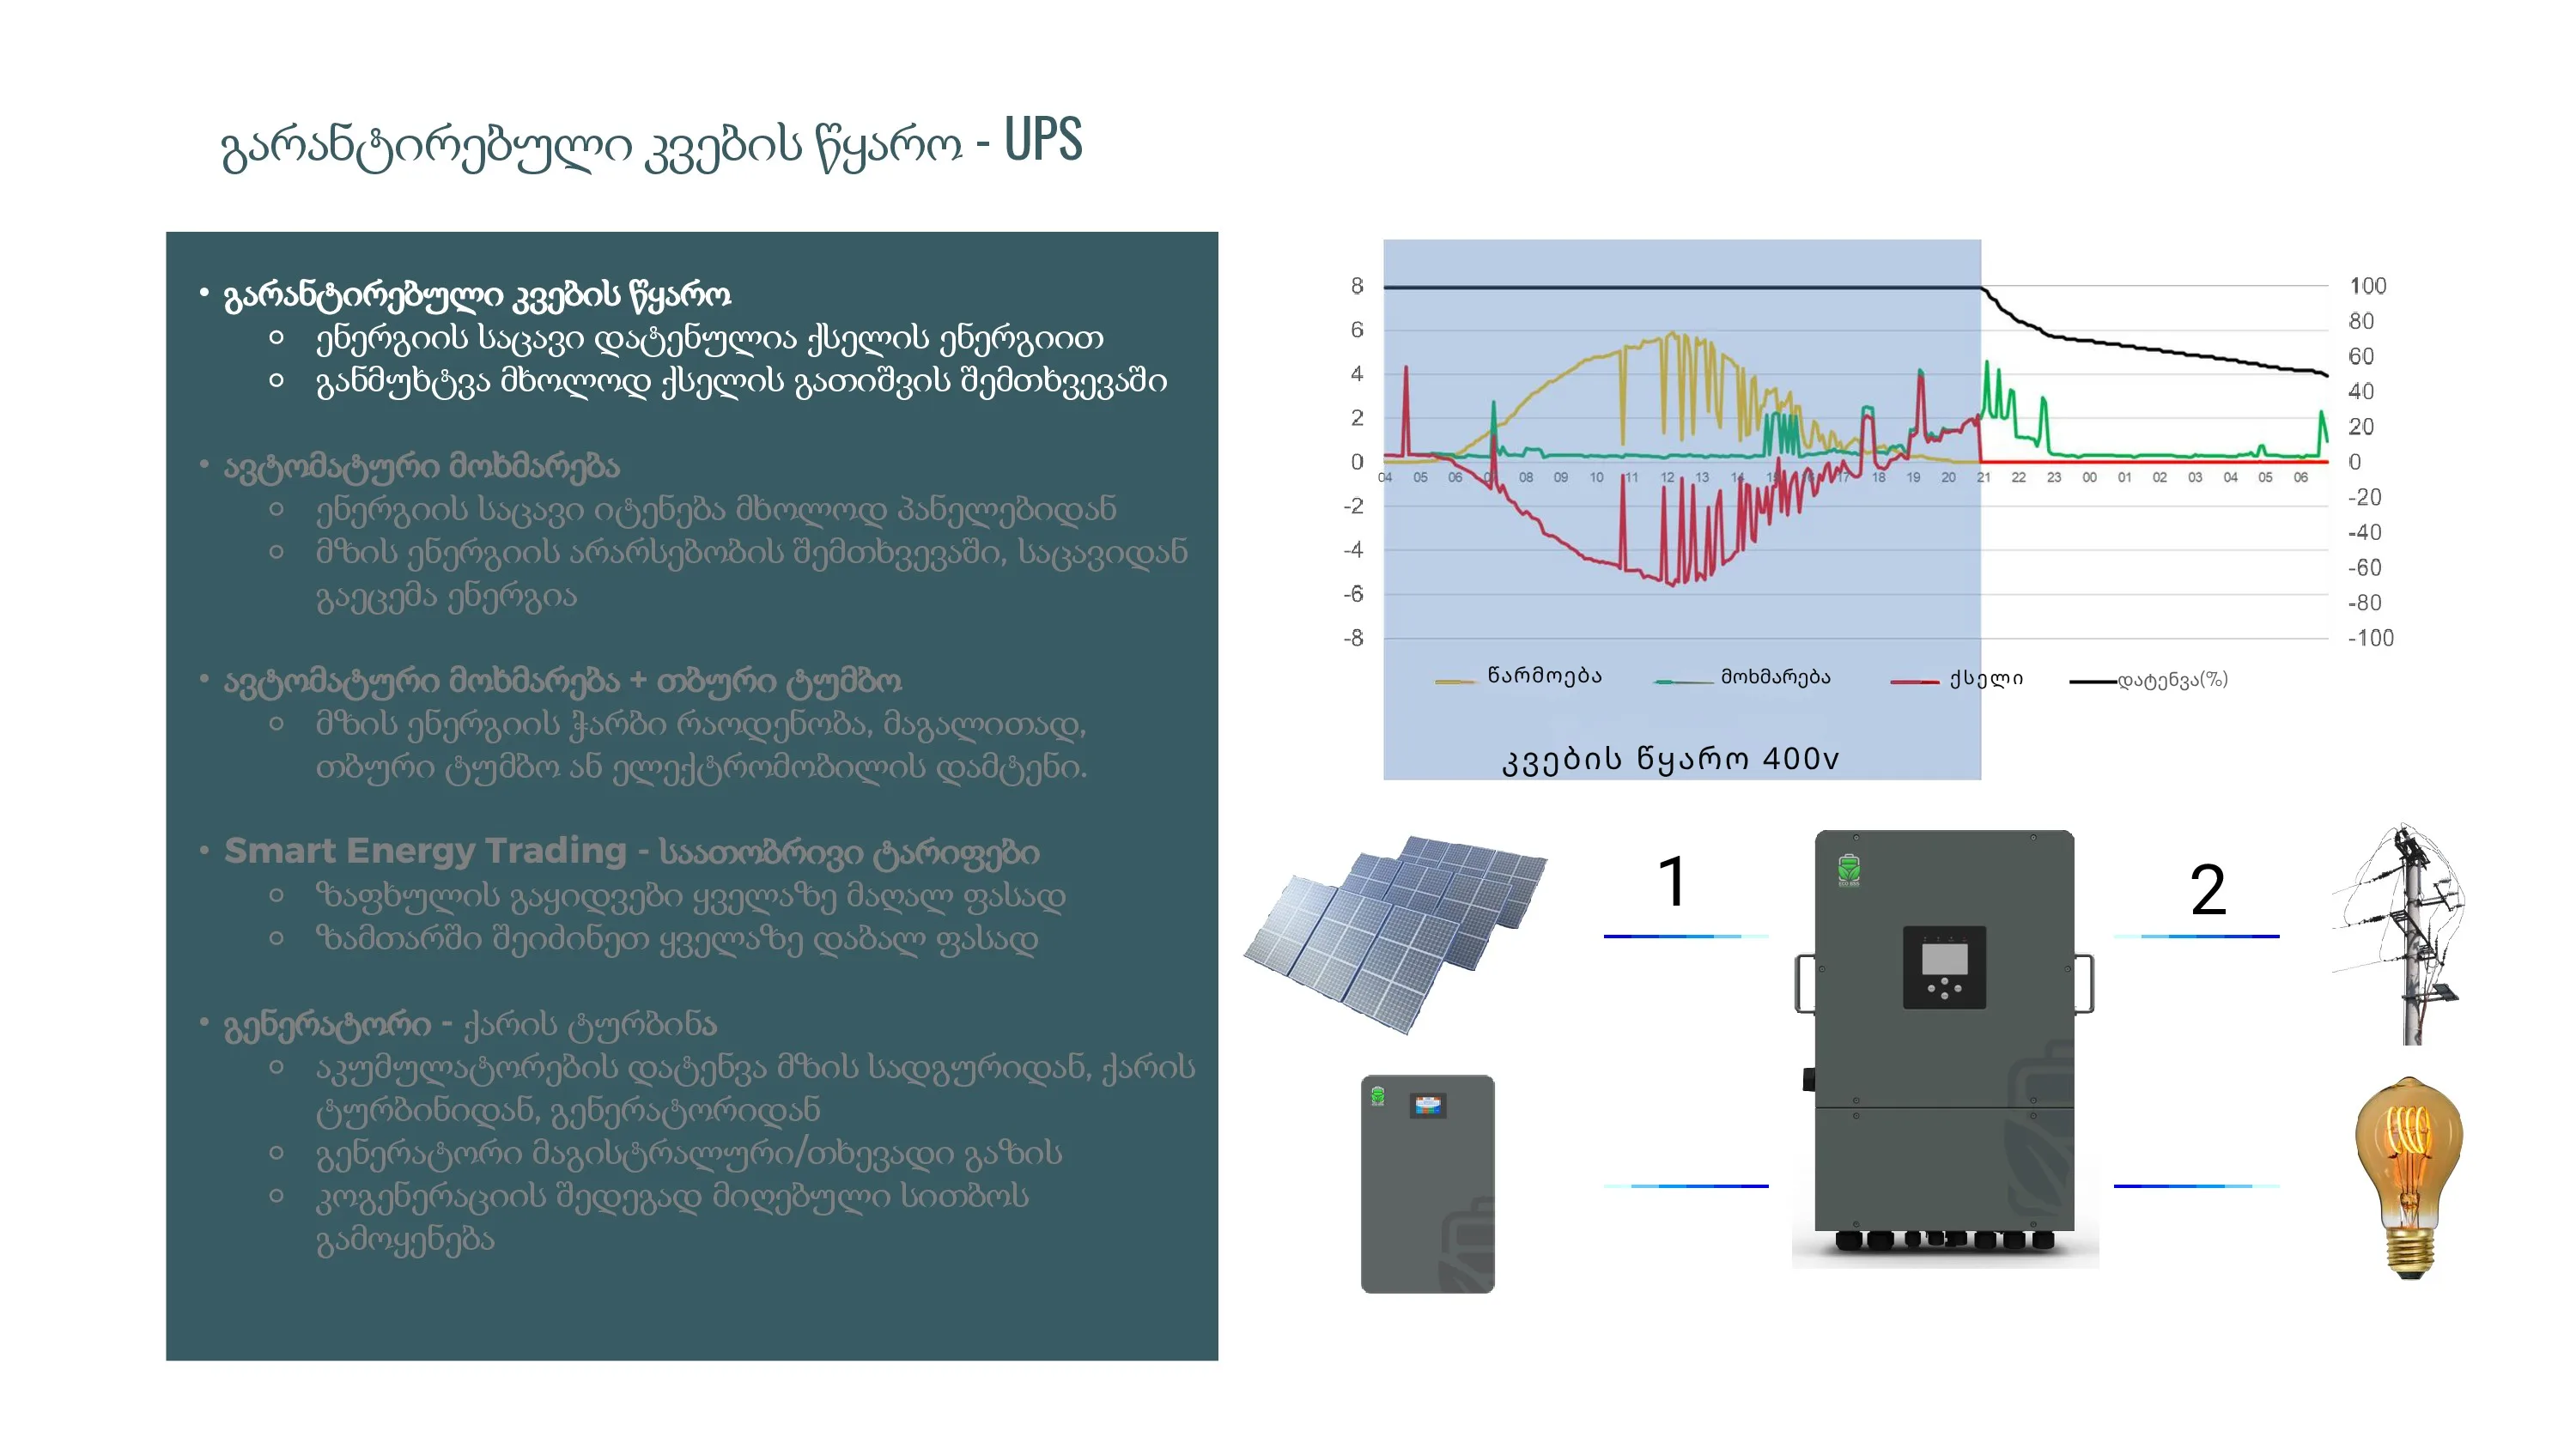 გარანტირებული კვების წყარო - UPS
• გარანტირებული კვების წყარო
○ ენერგიის საცავი დატენულია ქსელის ენერგიით
○ განმუხტვა მხოლოდ ქსელის გათიშვის შემთხვევაში
• ავტომატური მოხმარება
○ ენერგიის საცავი იტენება მხოლოდ პანელებიდან
○ მზის ენერგიის არარსებობის შემთხვევაში, საცავიდან
გაეცემა ენერგია
• ავტომატური მოხმარება + თბური ტუმბო
○ მზის ენერგიის ჭარბი რაოდენობა, მაგალითად,
თბური ტუმბო ან ელექტრომობილის დამტენი.
• Smart Energy Trading - საათობრივი ტარიფები
○ ზაფხულის გაყიდვები ყველაზე მაღალ ფასად
○ ზამთარში შეიძინეთ ყველაზე დაბალ ფასად
• გენერატორი - ქარის ტურბინა
○ აკუმულატორების დატენვა მზის სადგურიდან, ქარის
ტურბინიდან, გენერატორიდან
○ გენერატორი მაგისტრალური/თხევადი გაზის
○ კოგენერაციის შედეგად მიღებული სითბოს
გამოყენება
8 100
6 80
4 60
2 40
0 20
-2 0
-4 -20
-6 -40
-8 -60
-80
-100
04 05 06 07 08 09 10 11 12 13 14 15 16 17 18 19 20 21 22 23 00 01 02 03 04 05 06
წარმოება მოხმარება ქსელი დატენვა(%)
კვების წყარო 400v
1 2